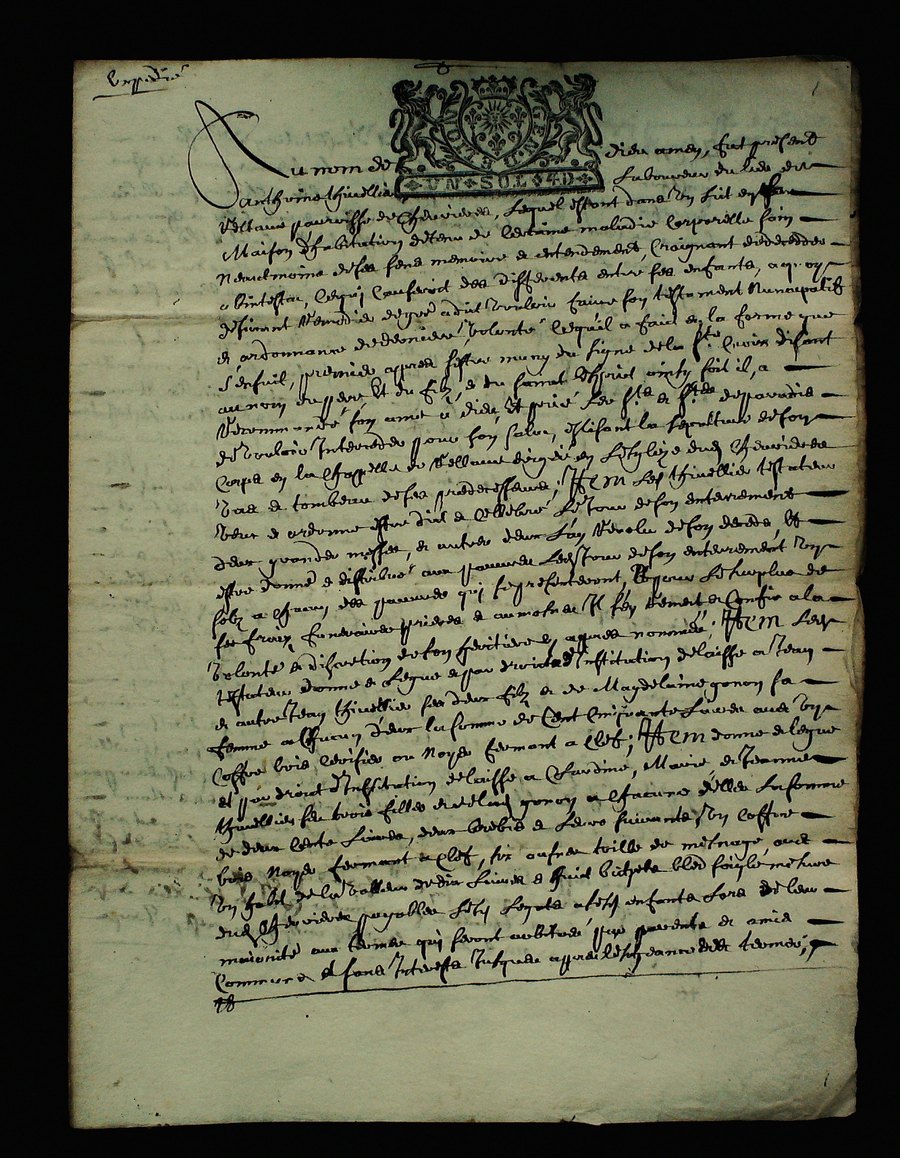 Expedié
1
GEN. DE LION
UN SOL 4D
Au nom de dieu amen, fut present
anthoine thivellier Laboureur du lieu de
Vellaus parroisse de Chevrieres, Lequel estant dans un lit en sa
Maison d'habitation detenu de certaine maladie Corporelle sain
Neantmoins de ses sens memoire et entendement, Craignant de deceder
abintestat, Ce qui Causeroit des differents entre ses enfants, a quoy
desirant remedier de gré a dit vouloir faire son testament Nuncupatif
et ordonnance de derniere volonté Lequel il a fait en la forme que
s'ensuit, premier apprès s'estre muny du signe de la Ste Croix disant
au nom du pere Et du filz et du sainct Esprit ainsy soit il, a
Recommandé son ame a dieu Et prié Les Sts et Stes de paradis
de vouloir Interceder pour son salut, eslisant la sepulture de son
Corps en la Chappelle de Vellaus erigée en Lesglize dud Chevrieres
Vas et tombeau de ses predecesseurs; Item Led thivellier testateur
Veut et ordonne estre dit et Cellebré Le Jour de son enterrement
deux grandes messes, et autres deux L'an revolu de son deceds, Et
estre donné et distribué aux pauvres Led Jour de son enterrement un
solz a Chacun des pauvres qui se presenteront, Et pour Le surplus de
ses fraix funeraires prieres et aumosnes Il s'en remet et Confie a la
Volonté et discretion de son heritiere cy appres nommée; Item Led
testateur donne et Legue et par droict d'Institution delaisse a Jean
et autre Jean thivellier ses deux filz et de Magdelaine gonon sa
femme a Chacun d'eux la somme de Cent Cinquante Livres avec un
Coffre bois Cerisier ou Noyer fermant a Clef; Item donne et legue
et par droict d'Institution delaisse a Clardine, Marie et Jeanne
thivellier ses trois filles et de lad gonon a Chacune d'elles La somme
de deux Cents Livres, deux brebis et Leurs suivants, Un Coffre
bois Noyer fermant a Clef, six aulnes toille de mesnage, avec
un habit de la Valleur de dix Livres et huit bichets bled soigle mesure
dud Chevrieres payables Lesd Legats a sesd enfants Lors de leur
majorité aux termes qui seront arbitrés par parents et amis
Communs Et sans Interests Jusques appres L'escheance desd termes,
Et
1